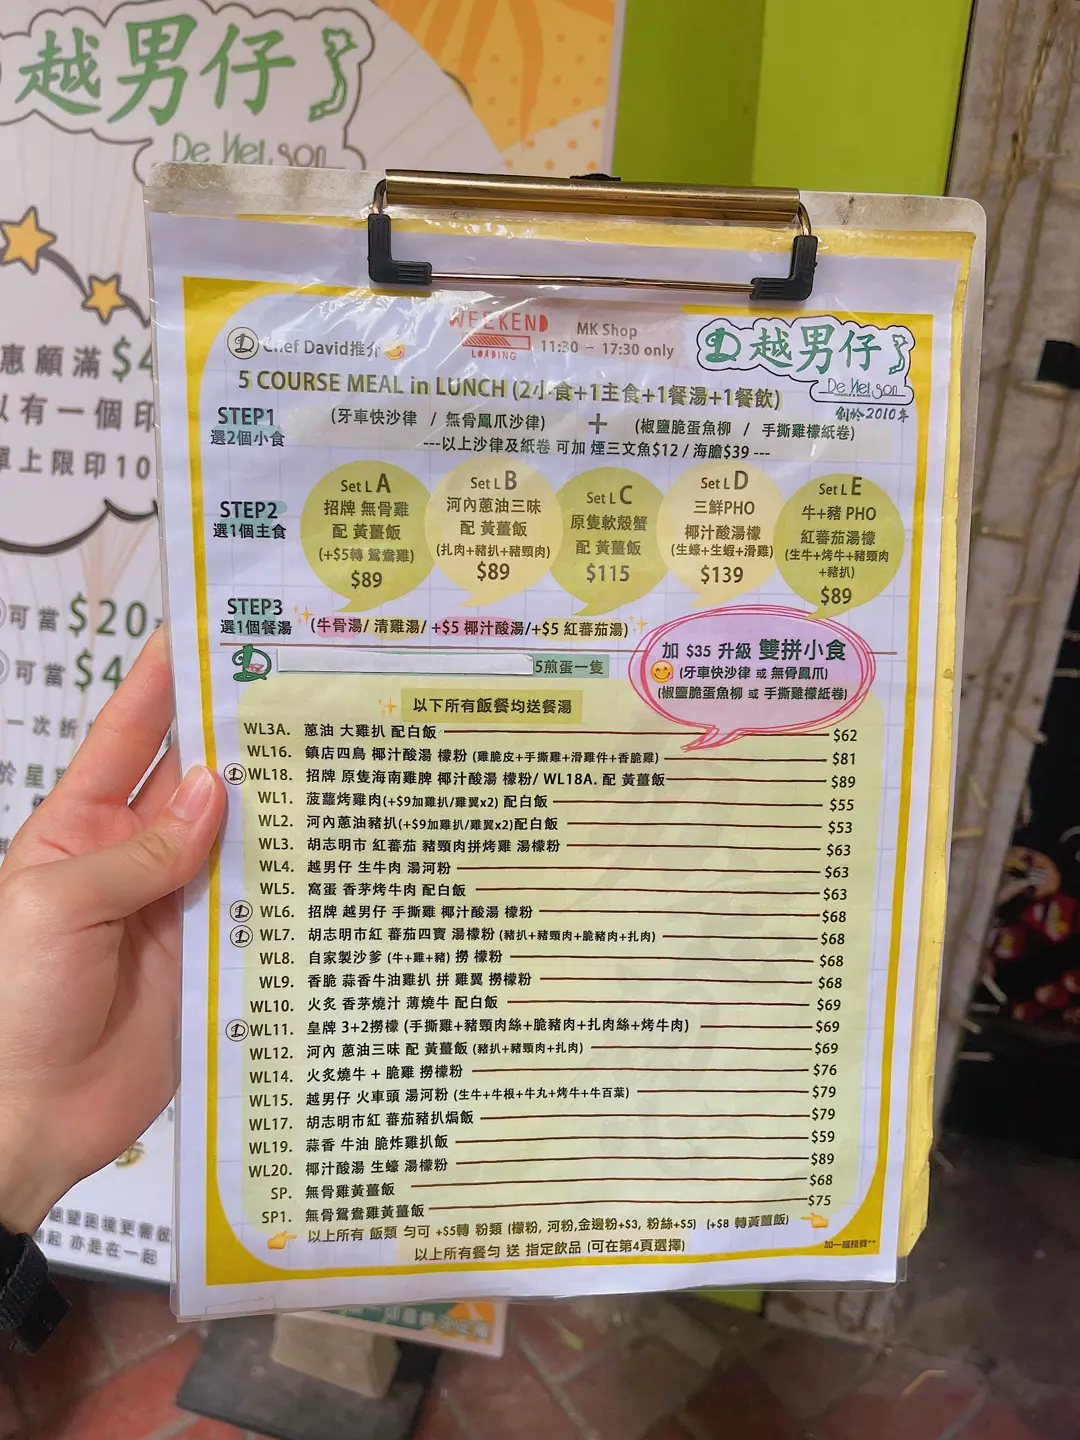 越男仔
De Nelson
惠顧滿 $4
以有一個印
單上限印10
可當 $20
可當 $4
一次折
WEEKEND
LOADING
MK Shop
11:30 – 17:30 only
Chef David推介
越男仔
De Nelson
創於2010年
5 COURSE MEAL in LUNCH (2小食+1主食+1餐湯+1餐飲)
STEP1
選2個小食
(牙車快沙律 / 無骨鳳爪沙律) + (椒鹽脆蛋魚柳 / 手撕雞檬紙卷)
---以上沙律及紙卷 可加 煙三文魚$12 / 海膽$39 ---
STEP2
選1個主食
Set L A
招牌 無骨雞
配 黃薑飯
(+$5轉 鴛鴦雞)
$89
Set L B
河內蔥油三味
配 黃薑飯
(扎肉+豬扒+豬頸肉)
$89
Set L C
原隻軟殼蟹
配 黃薑飯
$115
Set L D
三鮮PHO
椰汁酸湯檬
(生蠔+生蝦+滑雞)
$139
Set L E
牛+豬 PHO
紅蕃茄湯檬
(生牛+烤牛+豬頸肉
+豬扒)
$89
STEP3
選1個餐湯
(牛骨湯/ 清雞湯/ +$5 椰汁酸湯/+$5 紅蕃茄湯)
5煎蛋一隻
加 $35 升級 雙拼小食
(牙車快沙律 或 無骨鳳爪)
(椒鹽脆蛋魚柳 或 手撕雞檬紙卷)
以下所有飯餐均送餐湯
WL3A. 蔥油 大雞扒 配白飯 $62
WL16. 鎮店四鳥 椰汁酸湯 檬粉 (雞脆皮+手撕雞+滑雞件+香脆雞) $81
WL18. 招牌 原隻海南雞髀 椰汁酸湯 檬粉/ WL18A. 配 黃薑飯 $89
WL1. 菠蘿烤雞肉(+$9加雞扒/雞翼x2) 配白飯 $55
WL2. 河內蔥油豬扒(+$9加雞扒/雞翼x2)配白飯 $53
WL3. 胡志明市 紅蕃茄 豬頸肉拼烤雞 湯檬粉 $63
WL4. 越男仔 生牛肉 湯河粉 $63
WL5. 窩蛋 香茅烤牛肉 配白飯 $63
WL6. 招牌 越男仔 手撕雞 椰汁酸湯 檬粉 $68
WL7. 胡志明市紅 蕃茄四寶 湯檬粉 (豬扒+豬頸肉+脆豬肉+扎肉) $68
WL8. 自家製沙爹 (牛+雞+豬) 撈 檬粉 $68
WL9. 香脆 蒜香牛油雞扒 拼 雞翼 撈檬粉 $68
WL10. 火炙 香茅燒汁 薄燒牛 配白飯 $69
WL11. 皇牌 3+2撈檬 (手撕雞+豬頸肉絲+脆豬肉+扎肉絲+烤牛肉) $69
WL12. 河內 蔥油三味 配 黃薑飯 (豬扒+豬頸肉+扎肉) $69
WL14. 火炙燒牛 + 脆雞 撈檬粉 $76
WL15. 越男仔 火車頭 湯河粉 (生牛+牛根+牛丸+烤牛+牛百葉) $79
WL17. 胡志明市紅 蕃茄豬扒焗飯 $79
WL19. 蒜香 牛油 脆炸雞扒飯 $59
WL20. 椰汁酸湯 生蠔 湯檬粉 $89
SP. 無骨雞黃薑飯 $68
SP1. 無骨鴛鴦雞黃薑飯 $75
以上所有 飯類 勻可 +$5轉 粉類 (檬粉, 河粉,金邊粉+$3, 粉絲+$5) (+$8 轉黃薑飯)
以上所有餐勻 送 指定飲品 (可在第4頁選擇)
加一服務費**